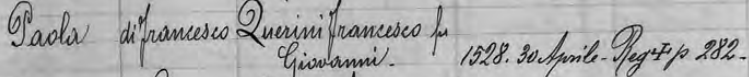 Paola di Francesco Querini Francesco fu
Giovanni. 1528. 30 Aprile. Reg. I p 282.